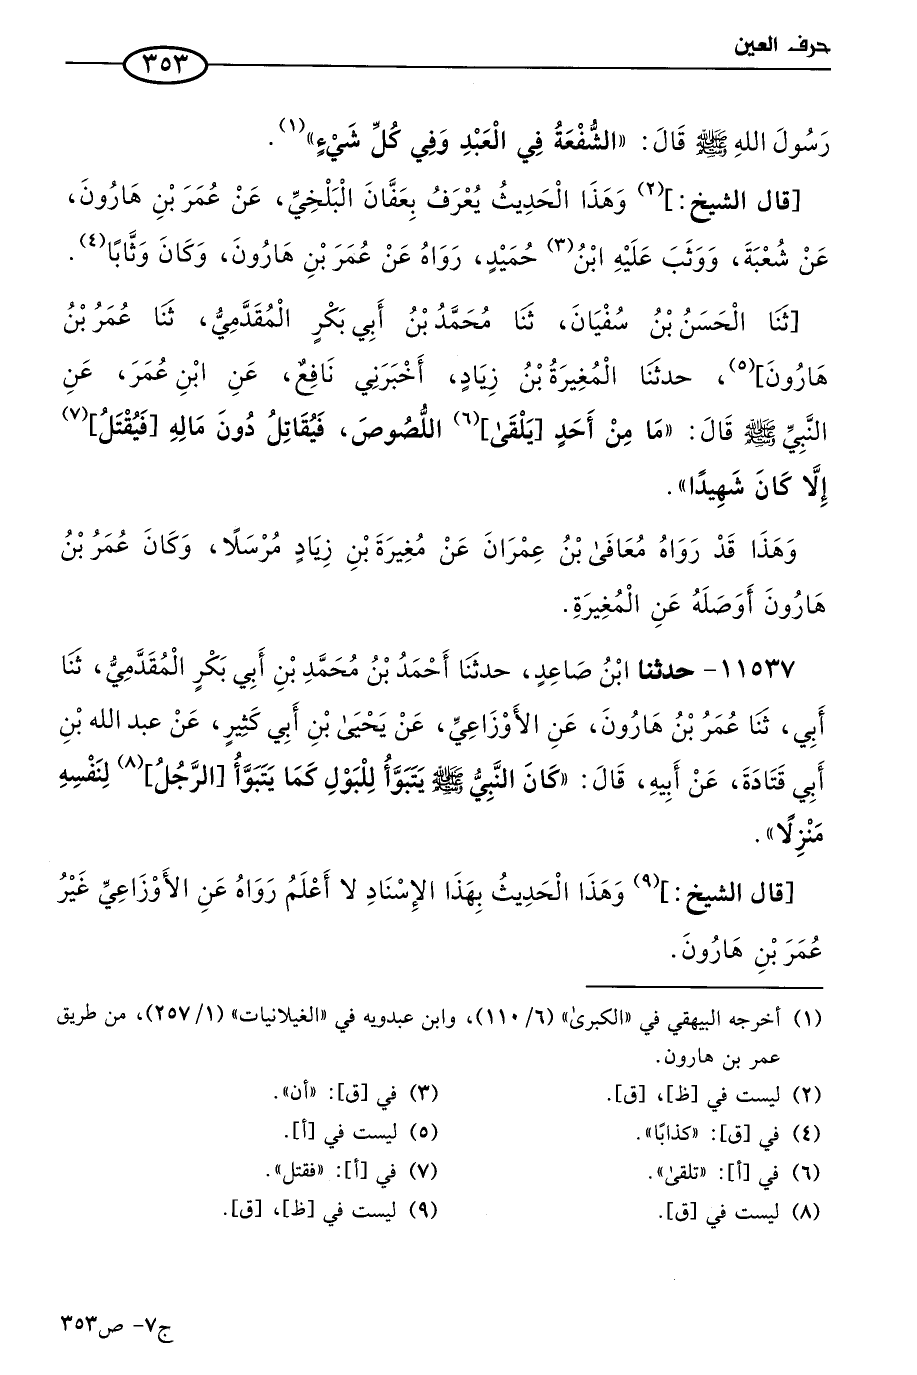 حرف العين
٣٥٣
رَسُولَ اللهِ ﷺ قَالَ: «الشُّفْعَةُ فِي الْعَبْدِ وَفِي كُلِّ شَيْءٍ»(١).
[قال الشيخ:](٢) وَهَذَا الْحَدِيثُ يُعْرَفُ بِعَفَّانَ الْبَلْخِيِّ، عَنْ عُمَرَ بْنِ هَارُونَ،
عَنْ شُعْبَةَ، وَوَثَبَ عَلَيْهِ ابْنُ(٣) حُمَيْدٍ، رَوَاهُ عَنْ عُمَرَ بْنِ هَارُونَ، وَكَانَ وَثَّابًا(٤).
[ثَنَا الْحَسَنُ بْنُ سُفْيَانَ، ثَنَا مُحَمَّدُ بْنُ أَبِي بَكْرٍ الْمُقَدَّمِيُّ، ثَنَا عُمَرُ بْنُ
هَارُونَ](٥)، حدثَنَا الْمُغِيرَةُ بْنُ زِيَادٍ، أَخْبَرَنِي نَافِعٌ، عَنِ ابْنِ عُمَرَ، عَنِ
النَّبِيِّ ﷺ قَالَ: «مَا مِنْ أَحَدٍ [يَلْقَىٰ](٦) اللُّصُوصَ، فَيُقَاتِلُ دُونَ مَالِهِ [فَيُقْتَلُ](٧)
إِلَّا كَانَ شَهِيدًا».
وَهَذَا قَدْ رَوَاهُ مُعَافَىٰ بْنُ عِمْرَانَ عَنْ مُغِيرَةَ بْنِ زِيَادٍ مُرْسَلًا، وَكَانَ عُمَرُ بْنُ
هَارُونَ أَوَصَلَهُ عَنِ الْمُغِيرَةِ.
١١٥٣٧- حدثنا ابْنُ صَاعِدٍ، حدثَنَا أَحْمَدُ بْنُ مُحَمَّدِ بْنِ أَبِي بَكْرٍ الْمُقَدَّمِيُّ، ثَنَا
أَبِي، ثَنَا عُمَرُ بْنُ هَارُونَ، عَنِ الأَوْزَاعِيِّ، عَنْ يَحْيَىٰ بْنِ أَبِي كَثِيرٍ، عَنْ عبد الله بْنِ
أَبِي قَتَادَةَ، عَنْ أَبِيهِ، قَالَ: «كَانَ النَّبِيُّ ﷺ يَتَبَوَّأُ لِلْبَوْلِ كَمَا يَتَبَوَّأُ [الرَّجُلُ](٨) لِنَفْسِهِ
مَنْزِلًا».
[قال الشيخ:](٩) وَهَذَا الْحَدِيثُ بِهَذَا الإِسْنَادِ لا أَعْلَمُ رَوَاهُ عَنِ الأَوْزَاعِيِّ غَيْرُ
عُمَرَ بْنِ هَارُونَ.
(١) أخرجه البيهقي في «الكبرىٰ» (٦/ ١١٠)، وابن عبدويه في «الغيلانيات» (١/ ٢٥٧)، من طريق
عمر بن هارون.
(٢) ليست في [ظ]، [ق].
(٣) في [ق]: «أن».
(٤) في [ق]: «كذابًا».
(٥) ليست في [أ].
(٦) في [أ]: «تلقىٰ».
(٧) في [أ]: «فقتل».
(٨) ليست في [ق].
(٩) ليست في [ظ]، [ق].
ج٧- ص٣٥٣